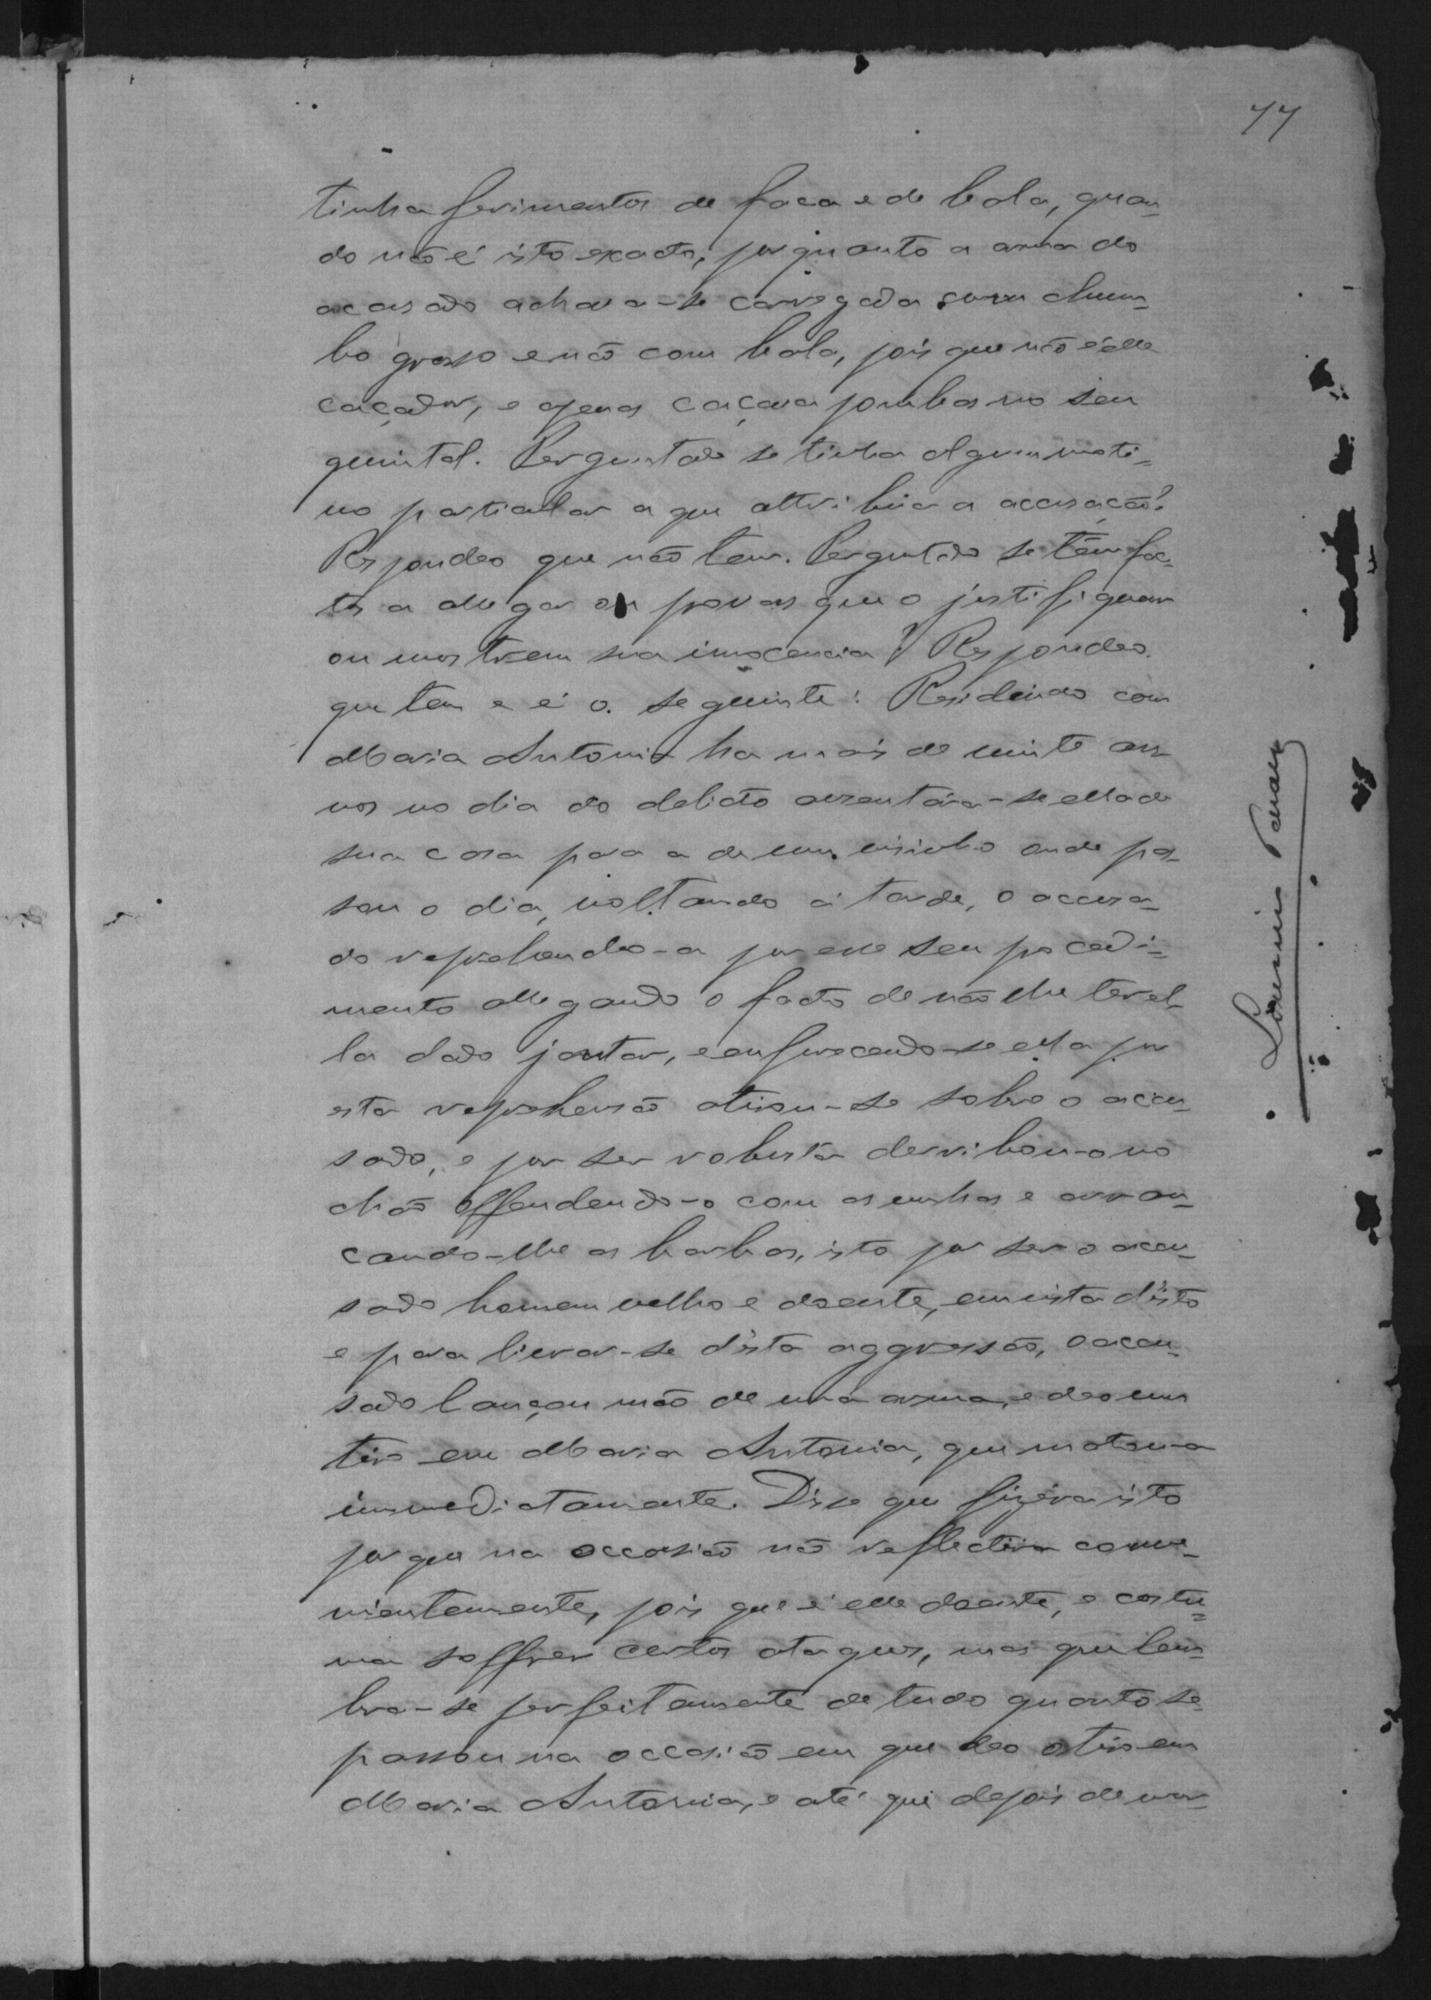 77
tinha ferimentos de faca e de bala, quan-
do não é isto exacto; porquanto a arma do
accusado achava-se carregada com chum-
bo grosso e não com bala, pois que não é elle
caçador, e apenas caçava pombas no seu
quintal. Perguntado se tinha algum moti-
vo particular a que attribuir a accusação?
Respondeo que não tem. Perguntado se tem fac-
tos a allegar ou provas que o justifiquem
ou mostrem sua innocencia? Respondeo
que tem e é o seguinte: Residindo com
Maria Antonia ha mais de vinte an-
nos no dia do delicto ausentára-se ella de
sua casa para a de um visinho onde pas-
sou o dia, voltando á tarde, o accusa-
do reprehendeo-a por esse seu procedi-
mento allegando o facto de não lhe ter el-
la dado jantar, e enfurecendo-se ella por
esta reprehensão atirou-se sobre o accu-
sado, e por ser robusta derribou-o no
chão offendendo-o com as unhas e arran-
cando-lhe as barbas, isto por ser o accu-
sado homem velho e doente, em vista disto
e para livrar-se d'esta aggressão, o accu-
sado lançou mão de uma arma, e deo um
tiro em Maria Antonia, que matou-a
immediatamente. Disse que fizéra isto
porque na occasião não reflectira conve-
nientemente, pois que é elle doente, e costu-
ma soffrer certos ataques, mas que lem-
bra-se perfeitamente de tudo quanto se
passou na occasião em que deo o tiro em
Maria Antonia, e até que depois de mor-